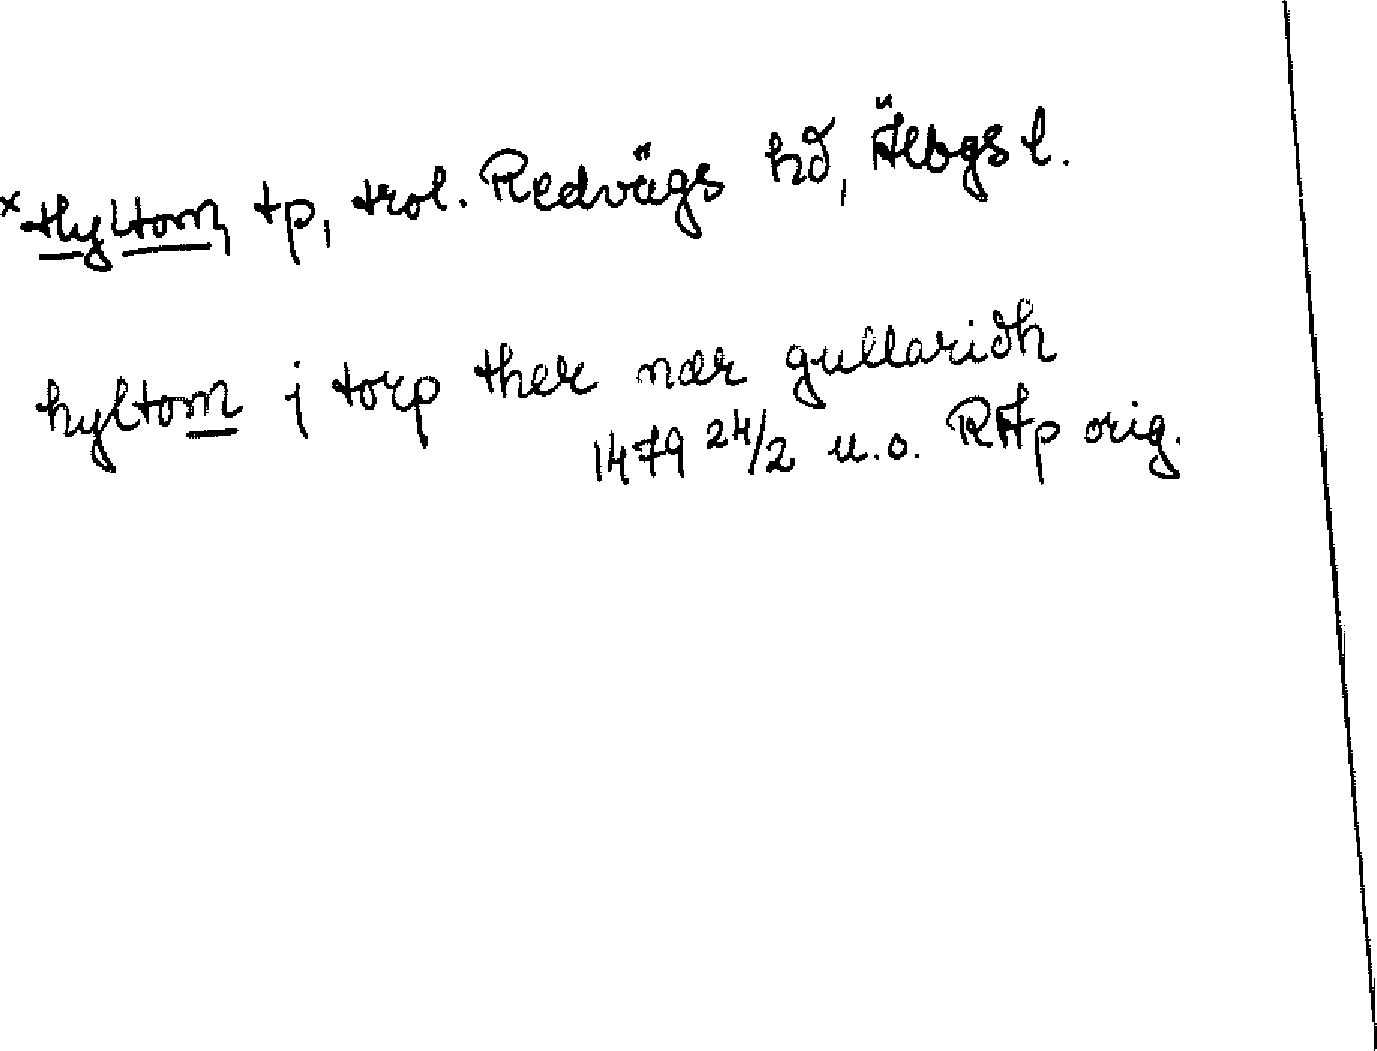 x Hyltom, tp, trol. Redvägs hd, Älvbgs l.
hyltom j torp ther nær gullaridh
1479 24/2 u.o. RAp orig.